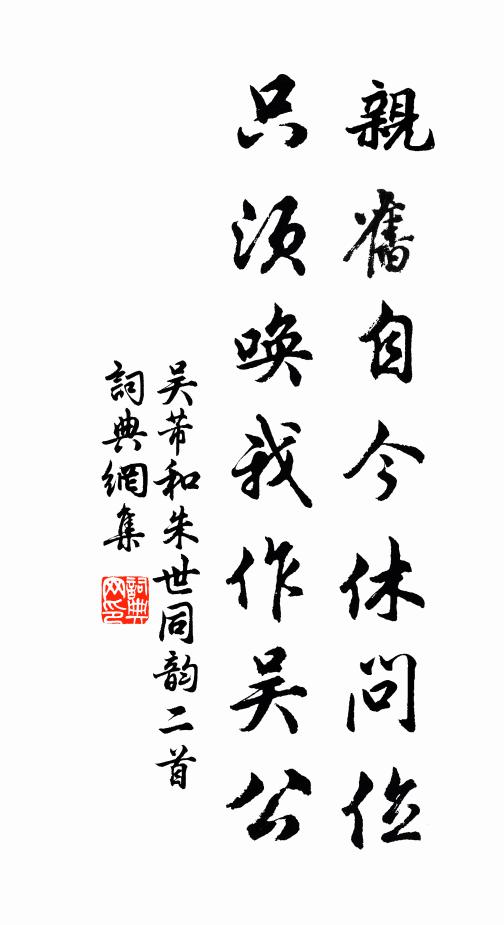 親舊自今休問位
只須喚我作吴公
吴芾和朱世同韵二首
詞典網集
詞典網印